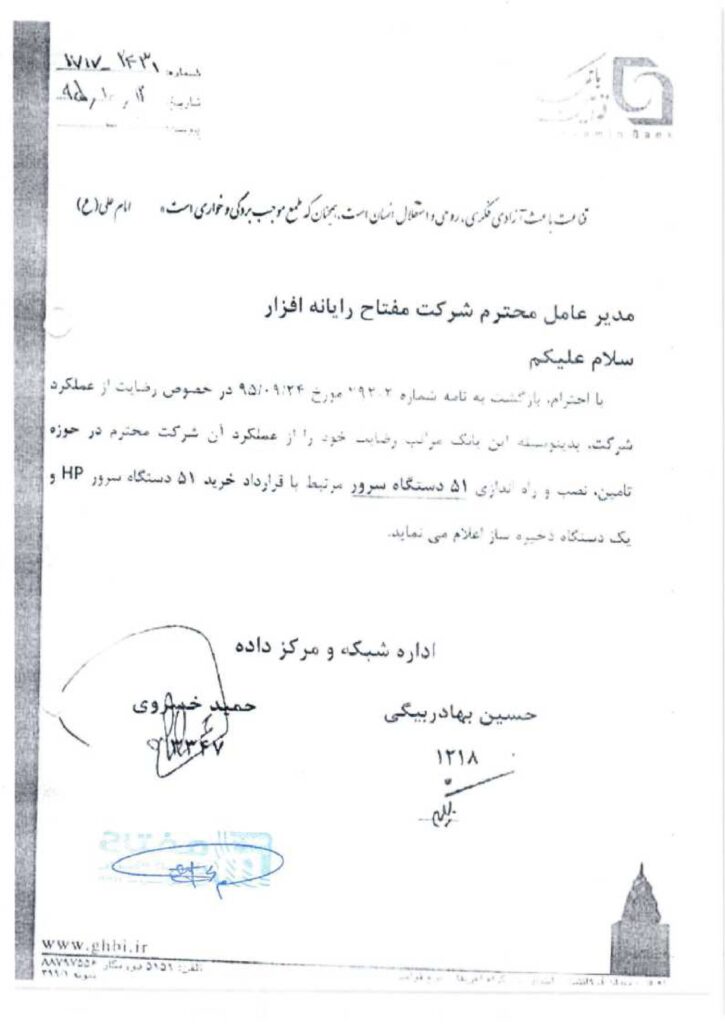 شماره: ۱۷۱۷-۲۴۳۱
تاریخ:
بانک
Bank
قناعت باعث آزادی فکری، روحی و استقلال انسان است، همچنان که طمع موجب بردگی و خواری است» امام علی (ع)
مدیر عامل محترم شرکت مفتاح رایانه افزار
سلام علیکم
با احترام، بازگشت به نامه شماره ۲۹۲۰۲ مورخ ۹۵/۰۹/۲۴ در خصوص رضایت از عملکرد
شرکت، بدینوسیله این بانک مراتب رضایت خود را از عملکرد آن شرکت محترم در حوزه
تامین، نصب و راه اندازی ۵۱ دستگاه سرور مرتبط با قرارداد خرید ۵۱ دستگاه سرور HP و
یک دستگاه ذخیره ساز اعلام می نماید.
اداره شبکه و مرکز داده
حسین بهادربیگی
حمید خسروی
۱۲۱۸
۱۳۳۴۷
www.ghbi.ir
تلفن: ۵۱۵۹ دورنگار: ۸۸۷۹۷۵۵۶